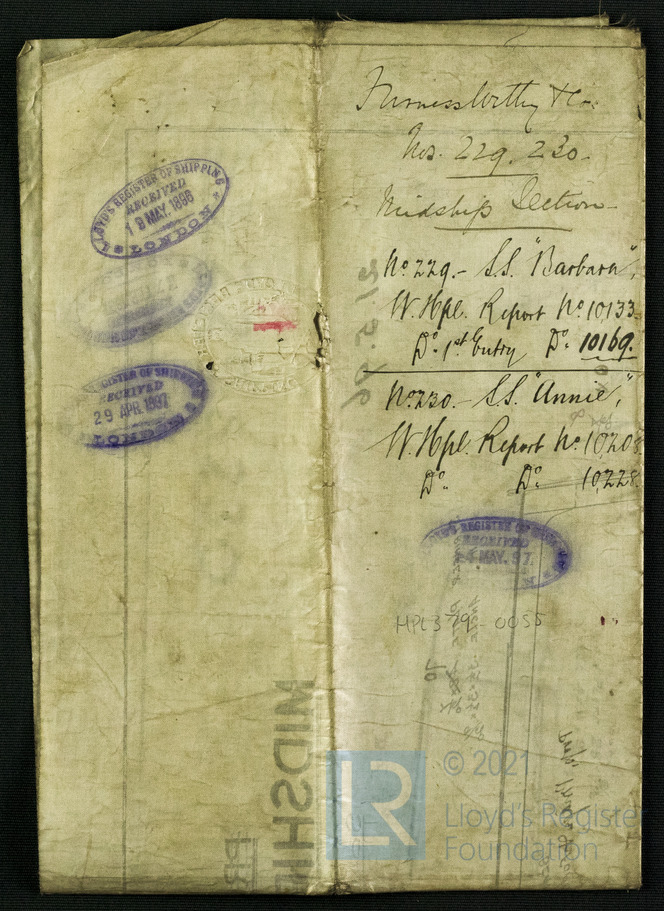 LLOYD'S REGISTER OF SHIPPING
RECEIVED
18 MAY. 1896
LONDON
REGISTER OF SHIPPING
RECEIVED
29 APR. 1897
LONDON
Furness Withy & Co.
Nos. 229. 230.
Midship Section
No. 229. - S.S. "Barbara",
W. Hpl. Report No. 10133.
Do. 1st Entry Do. 10169.
No. 230. - S.S. "Annie",
W. Hpl. Report No. 10208.
Do. Do. 10228.
LLOYD'S REGISTER OF
RECEIVED
4 MAY. 97.
HPL379-0055
MIDSHI
LR
© 2021
Lloyd's Register
Foundation